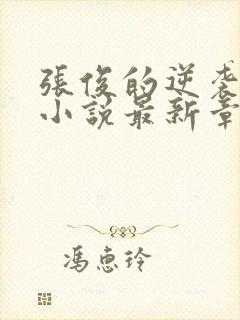 張俊的逆袭
小說最新章
馮惠玲